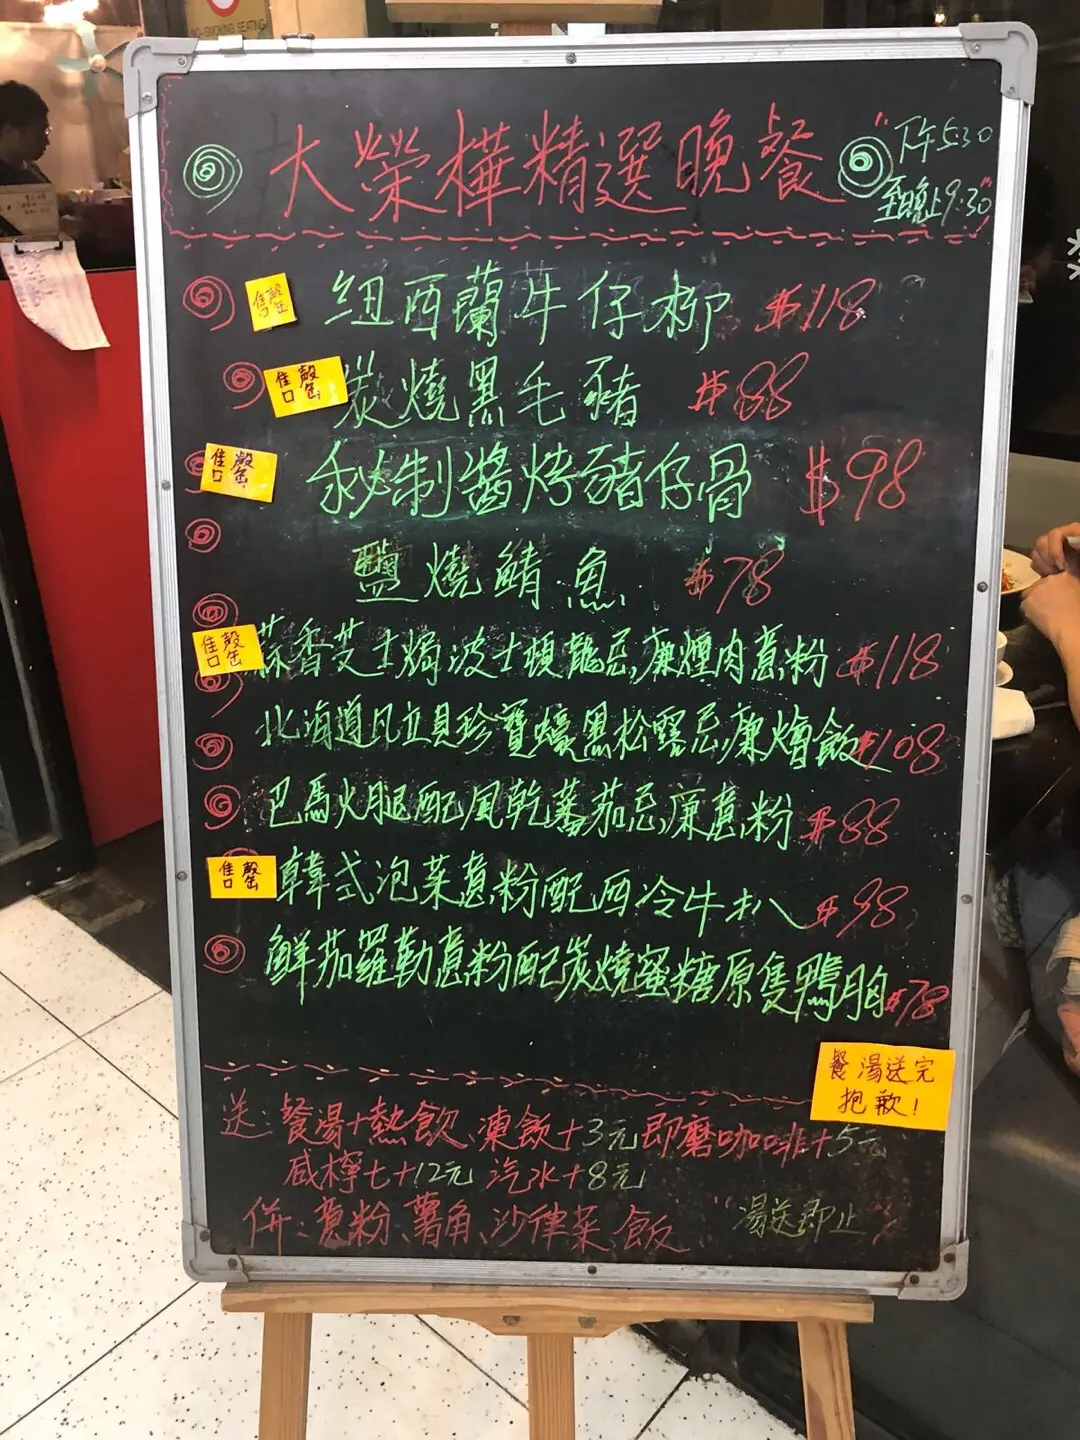 NO SMOKING SEATING
大榮樺精選晚餐
"下午5:30
至晚上9:30"
售罄 紐西蘭牛仔柳 $118
售罄 炭燒黑毛豬 $88
售罄 秘制醬烤豬仔骨 $98
鹽燒鯖魚 $78
售罄 蒜香芝士焗波士頓龍忌廉煙肉意粉 $118
北海道帆立貝珍寶蠔黑松露忌廉燴飯 $108
巴馬火腿配風乾蕃茄忌廉意粉 $88
售罄 韓式泡菜意粉配西冷牛扒 $98
鮮茄羅勒意粉配炭燒蜜糖原隻鴨胸 $78
餐湯送完
抱歉!
送:餐湯+熱飲、凍飲+3元即磨咖啡+5元
咸檸七+12元 汽水+8元
併:意粉、薯角、沙律菜、飯 "湯送即止"